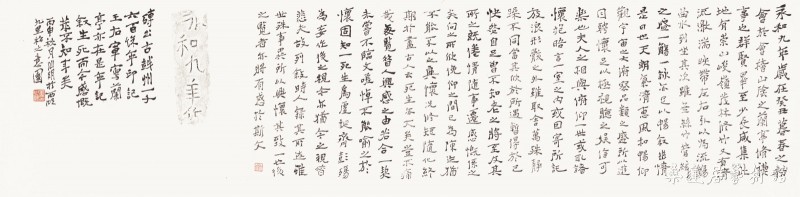 永和九年歲在癸丑暮春之初
會於會稽山陰之蘭亭修禊
事也群賢畢至少長咸集此
地有崇山峻嶺茂林修竹又有清
流激湍映帶左右引以為流觴
曲水列坐其次雖無絲竹管弦
之盛一觴一詠亦足以暢敘幽情
是日也天朗氣清惠風和暢仰
觀宇宙之大俯察品類之盛所以遊
目騁懷足以極視聽之娛信可
樂也夫人之相與俯仰一世或取諸
懷抱晤言一室之內或因寄所託
放浪形骸之外雖取舍萬殊靜
躁不同當其欣於所遇暫得於己
快然自足不知老之將至及其
所之既倦情隨事遷感慨係之
矣向之所欣俛仰之間已為陳跡猶
不能不以之興懷況修短隨化終
期於盡古人云死生亦大矣豈不痛
哉每覽昔人興感之由若合一契
未嘗不臨文嗟悼不能喻之於
懷固知一死生為虛誕齊彭殤
為妄作後之視今亦猶今之視昔
悲夫故列敘時人錄其所述雖
世殊事異所以興懷其致一也後
之覽者亦將有感於斯文
永和九年作
磚出古越州一千
六百餘年印記
王右軍書蘭
亭亦在是年記
敘生死而令感慨